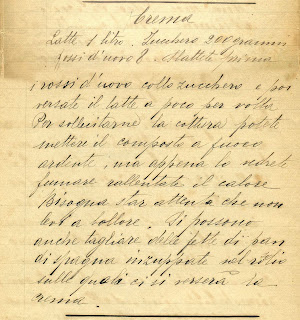 Crema
Latte 1 litro. Zucchero 200 grammi
rossi d'uovo 8. Mettete prima
i rossi d'uovo collo zucchero e poi
versate il latte a poco per volta
Per sollecitarne la cottura potete
mettere il composto a fuoco
ardente, ma appena lo vedrete
fumare rallentate il calore
Bisogna star attenta che non
dev a bollore. Si possono
anche tagliare delle fette di pan
di spagna inzuppate nel rosolio
sulle quali ci si verserà la
crema.